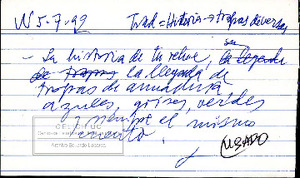 N 5-7-92 Trad = Historia → tropas diversas
su
- La historia de tu reloj, la llegada
de tropas La llegada de
tropas de armadura
azules, grises, verdes
y siempre el mismo
cuento.
USADO